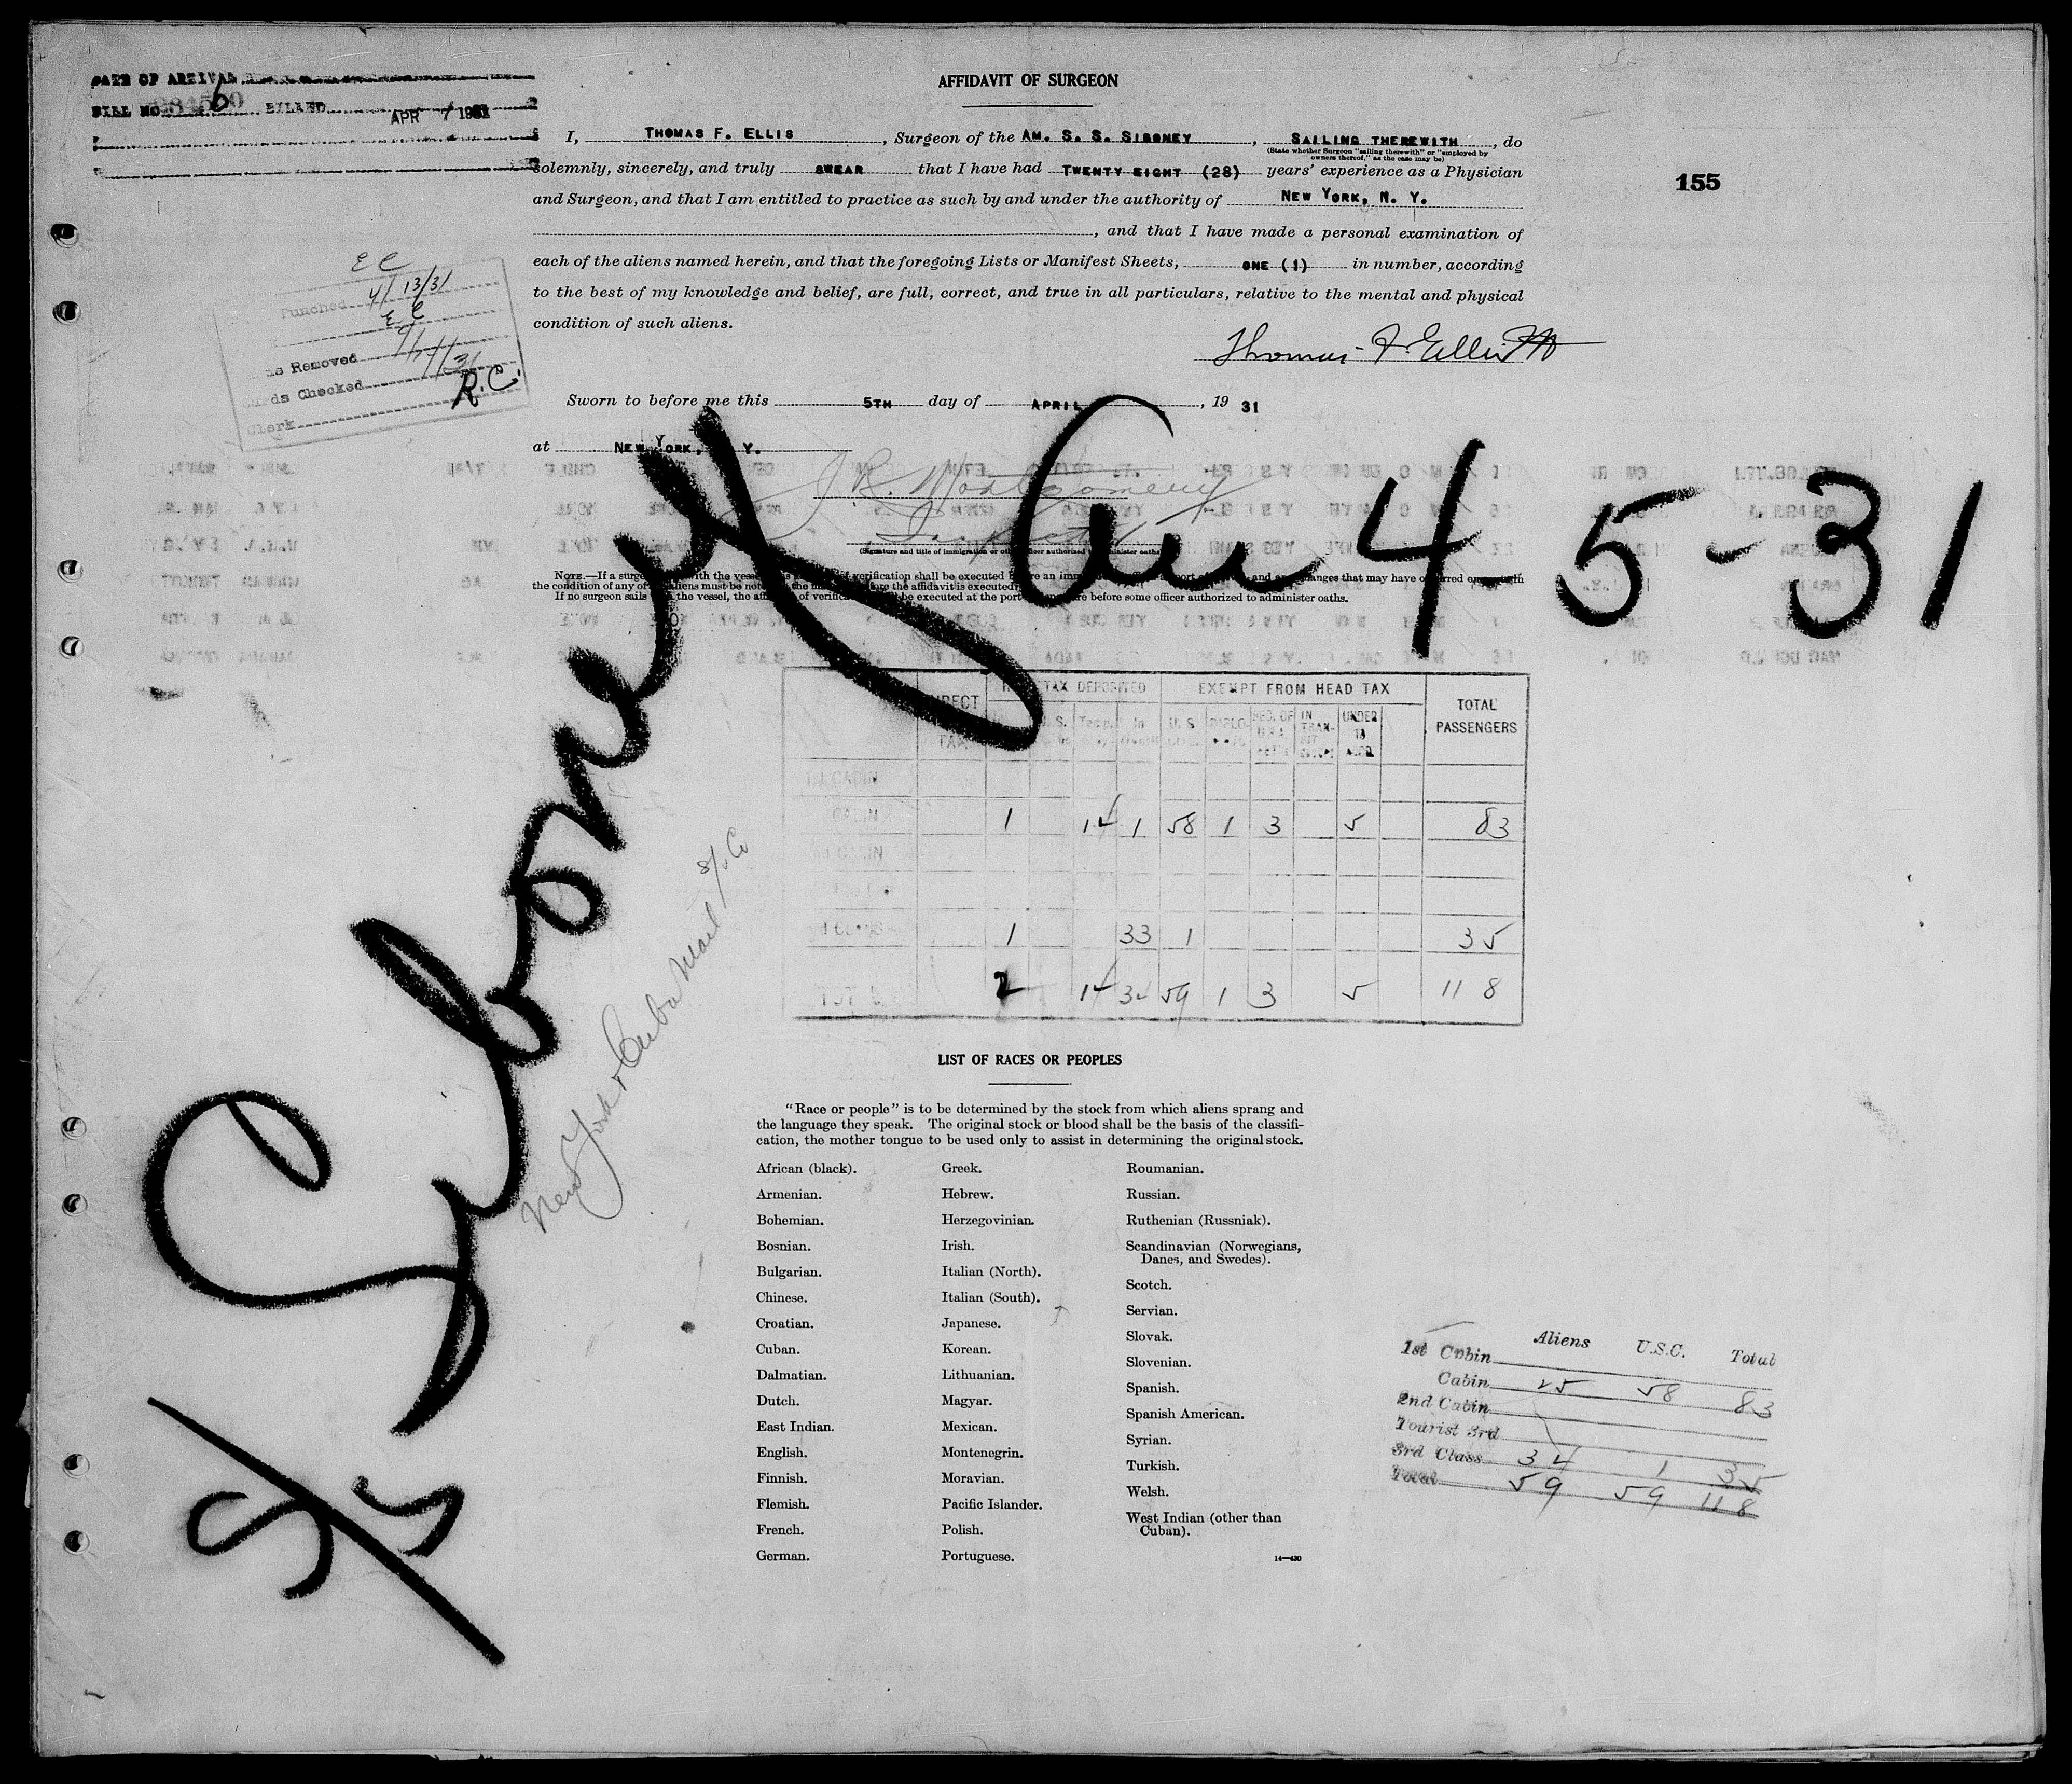 DATE OF ARRIVAL
BILL NO. BILLED APR 7 1931
AFFIDAVIT OF SURGEON
I, THOMAS F. ELLIS, Surgeon of the AM. S. S. SIBONEY, SAILING THEREWITH, do
(State whether Surgeon "sailing therewith" or "employed by
owners thereof," as the case may be)
solemnly, sincerely, and truly SWEAR that I have had TWENTY EIGHT (28) years' experience as a Physician
155
and Surgeon, and that I am entitled to practice as such by and under the authority of NEW YORK, N. Y.
, and that I have made a personal examination of
each of the aliens named herein, and that the foregoing Lists or Manifest Sheets, ONE (1) in number, according
to the best of my knowledge and belief, are full, correct, and true in all particulars, relative to the mental and physical
condition of such aliens.
E C
Punched 4/13/31
E C
Removed
Cards Checked
R.C.
Clerk
Thomas F. Ellis
Sworn to before me this 5TH day of APRIL, 19 31
at NEW YORK, Y.
J. R. Montgomery
Inspector
(Signature and title of immigration or officer authorized to administer oaths)
S/S Siboney
Arr 4-5-31
New York & Cuba Mail S/S Co
NOTE.—If a surgeon with the vessel verification shall be executed and changes that may have occurred
the condition of any of aliens must be noted before the affidavit is executed.
If no surgeon sails the vessel, the of verification be executed at the port before some officer authorized to administer oaths.
DIRECT TAX HEAD TAX DEPOSITED EXEMPT FROM HEAD TAX TOTAL PASSENGERS
U. S. IN TRANSIT UNDER 16
1st CABIN
CABIN 1 14 1 58 1 3 5 83
CABIN
1 33 1 35
TOTAL 2 14 34 59 1 3 5 118
LIST OF RACES OR PEOPLES
"Race or people" is to be determined by the stock from which aliens sprang and
the language they speak. The original stock or blood shall be the basis of the classifi-
cation, the mother tongue to be used only to assist in determining the original stock.
African (black).
Armenian.
Bohemian.
Bosnian.
Bulgarian.
Chinese.
Croatian.
Cuban.
Dalmatian.
Dutch.
East Indian.
English.
Finnish.
Flemish.
French.
German.
Greek.
Hebrew.
Herzegovinian.
Irish.
Italian (North).
Italian (South).
Japanese.
Korean.
Lithuanian.
Magyar.
Mexican.
Montenegrin.
Moravian.
Pacific Islander.
Polish.
Portuguese.
Roumanian.
Russian.
Ruthenian (Russniak).
Scandinavian (Norwegians,
Danes, and Swedes).
Scotch.
Servian.
Slovak.
Slovenian.
Spanish.
Spanish American.
Syrian.
Turkish.
Welsh.
West Indian (other than
Cuban).
14—430
Aliens U.S.C. Total
1st Cabin
Cabin 25 58 83
2nd Cabin
Tourist 3rd
3rd Class 34 1 35
Total 59 59 118